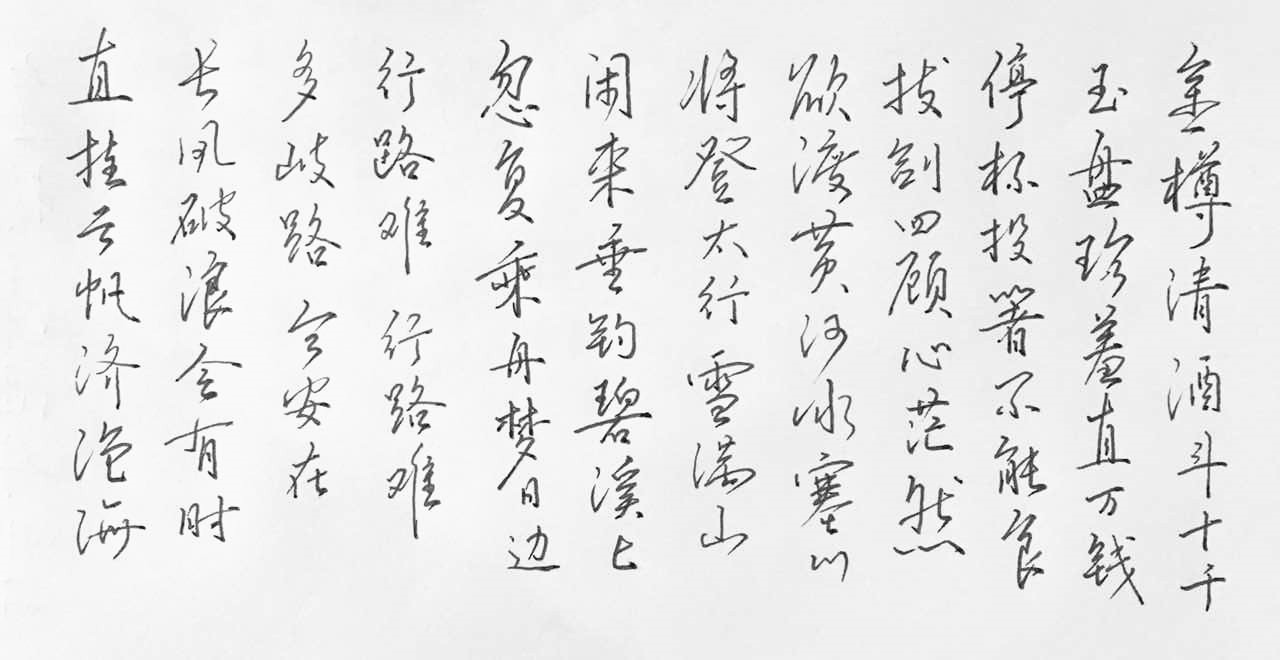 金樽清酒斗十千
玉盘珍羞直万钱
停杯投箸不能食
拔剑四顾心茫然
欲渡黄河冰塞川
将登太行雪满山
闲来垂钓碧溪上
忽复乘舟梦日边
行路难 行路难
多歧路 今安在
长风破浪会有时
直挂云帆济沧海